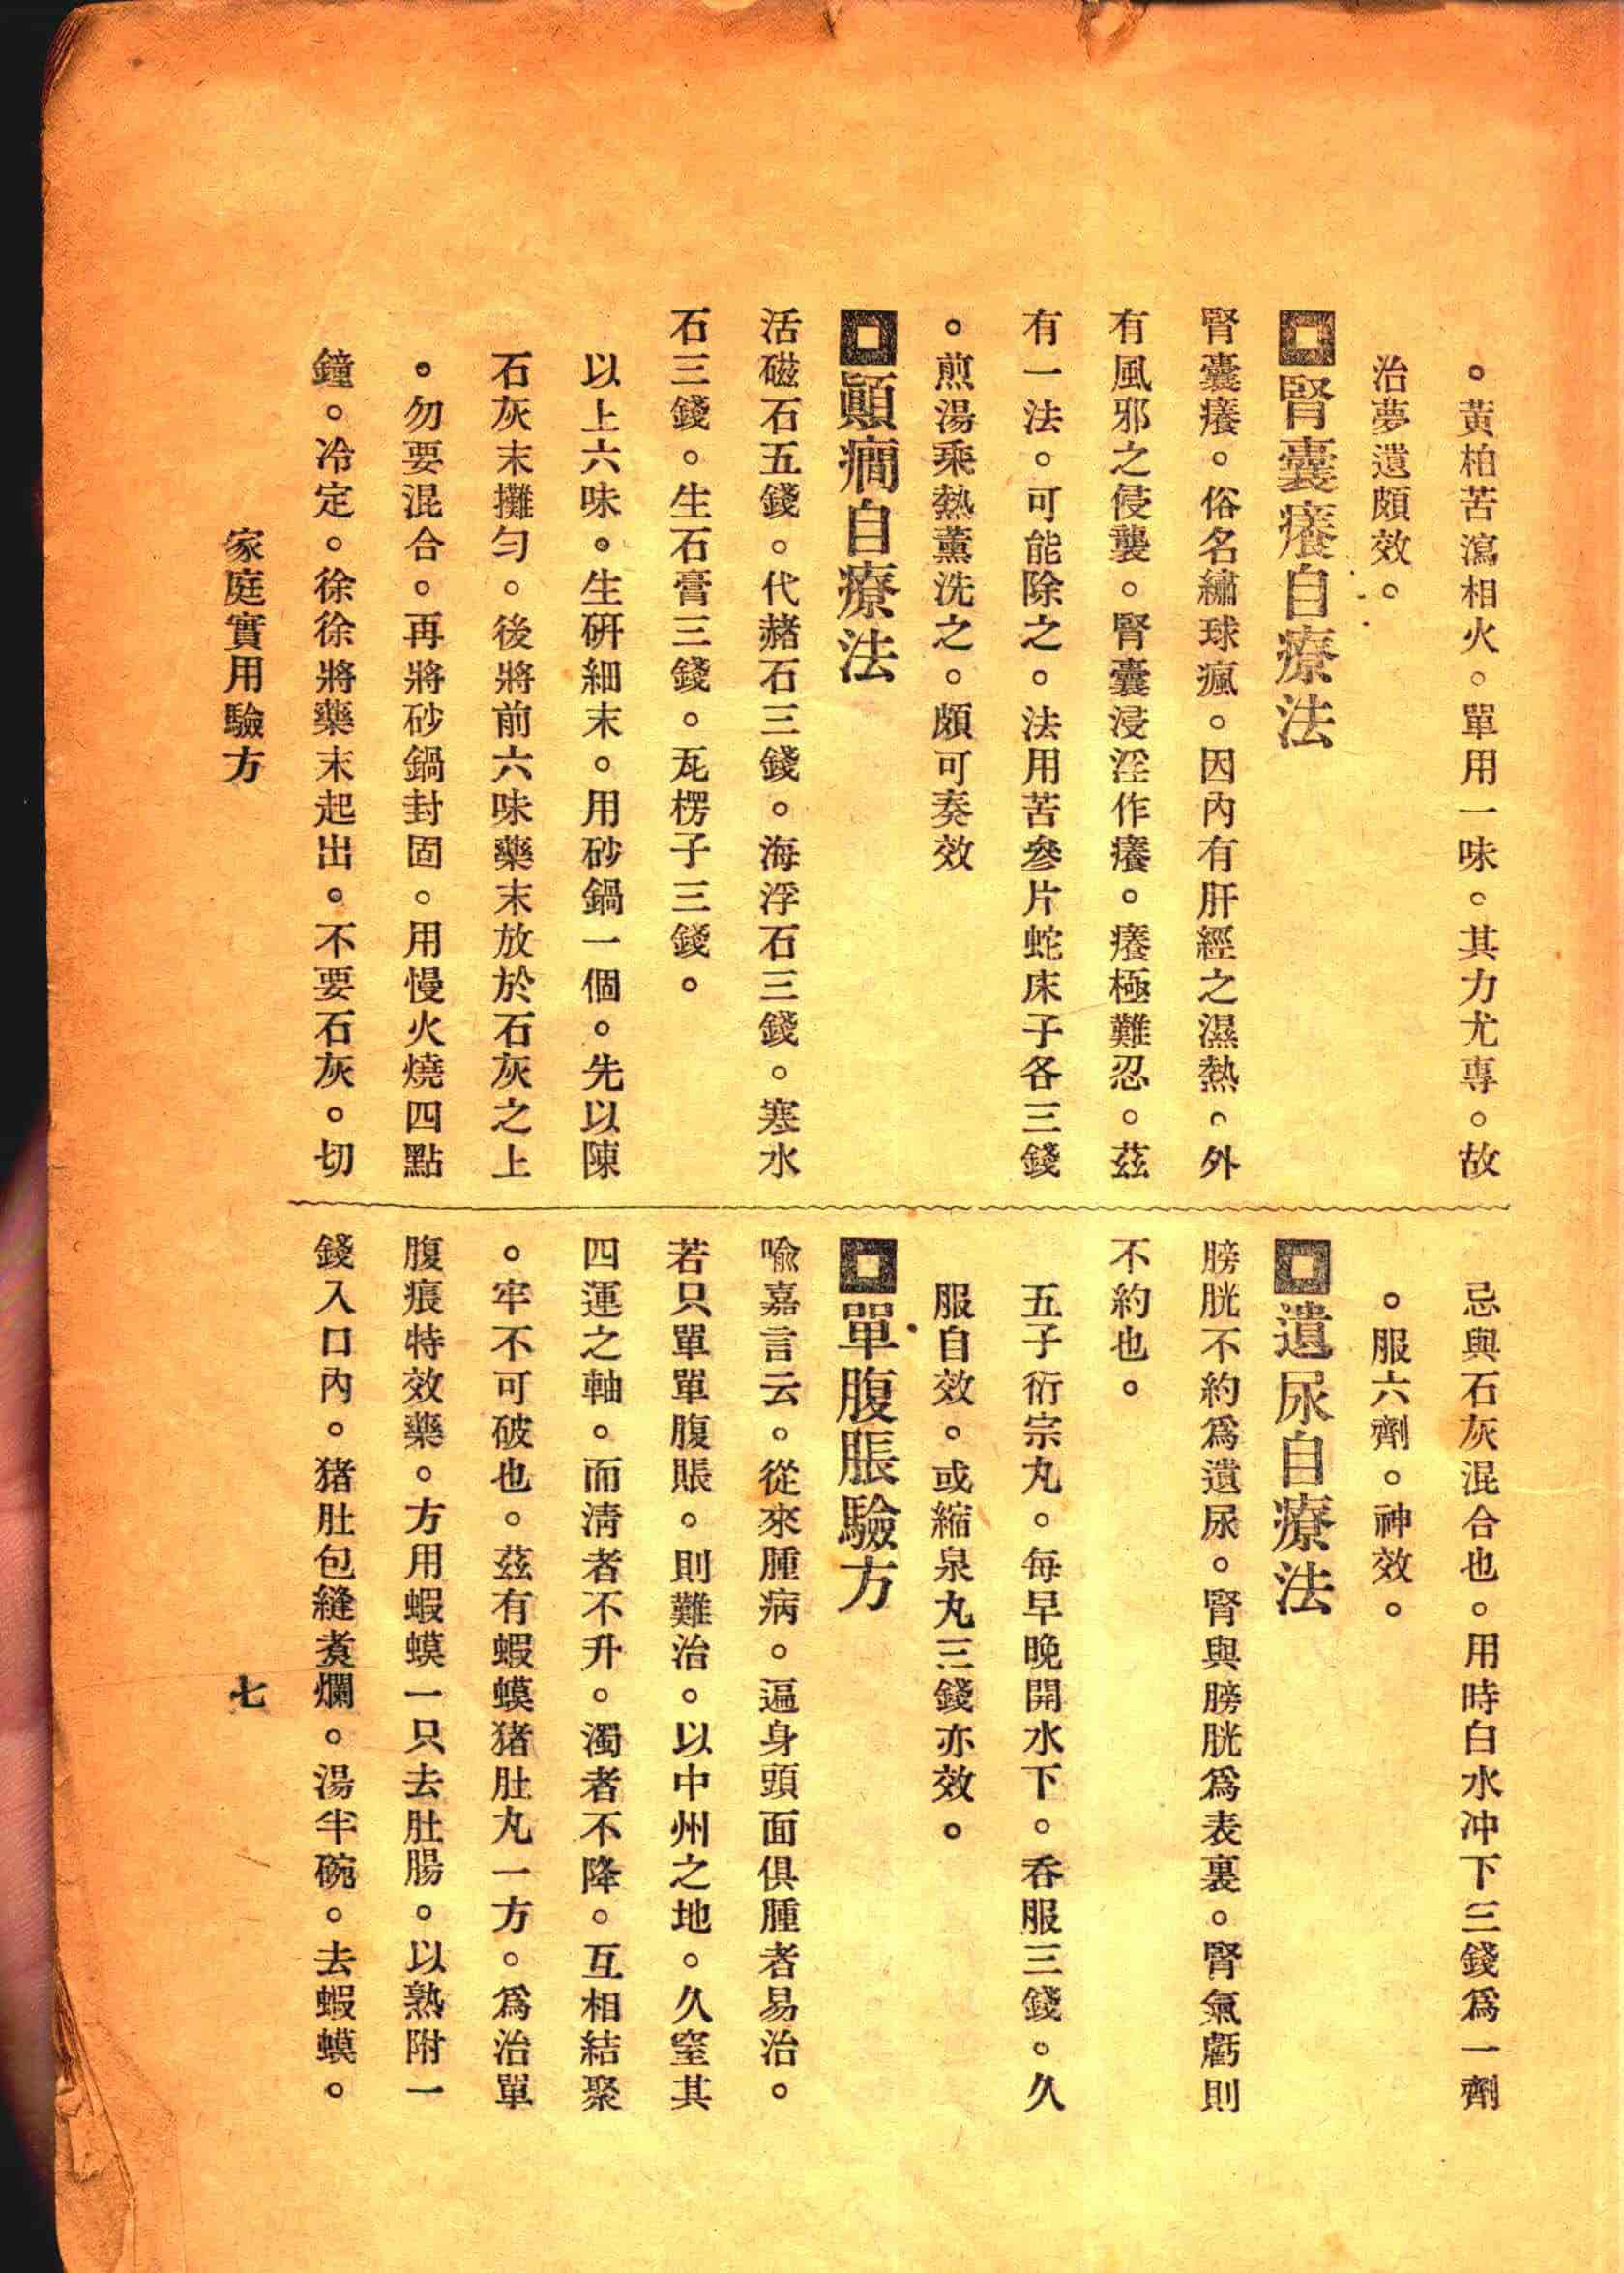 。黄柏苦瀉相火。單用一味。其力尤專。故
治夢遺頗效。
腎囊癢自療法
腎囊癢。俗名繡球瘋。因內有肝經之濕熱。外
有風邪之侵襲。腎囊浸淫作癢。癢極難忍。茲
有一法。可能除之。法用苦參片蛇床子各三錢
。煎湯乘熱薰洗之。頗可奏效
顚癎自療法
活磁石五錢。代赭石三錢。海浮石三錢。寒水
石三錢。生石膏三錢。瓦楞子三錢。
以上六味。生硏細末。用砂鍋一個。先以陳
石灰末攤勻。後將前六味藥末放於石灰之上
。勿要混合。再將砂鍋封固。用慢火燒四點
鐘。冷定。徐徐將藥末起出。不要石灰。切
忌與石灰混合也。用時白水冲下三錢爲一劑
。服六劑。神效。
遺尿自療法
膀胱不約爲遺尿。腎與膀胱爲表裏。腎氣虧則
不約也。
五子衍宗丸。每早晚開水下。吞服三錢。久
服自效。或縮泉丸三錢亦效。
單腹脹驗方
喩嘉言云。從來腫病。遍身頭面俱腫者易治。
若只單單腹脹。則難治。以中州之地。久窒其
四運之軸。而淸者不升。濁者不降。互相結聚
。牢不可破也。茲有蝦蟆猪肚丸一方。爲治單
腹痕特效藥。方用蝦蟆一只去肚腸。以熟附一
錢入口內。猪肚包縫煮爛。湯半碗。去蝦蟆。
家庭實用驗方
七